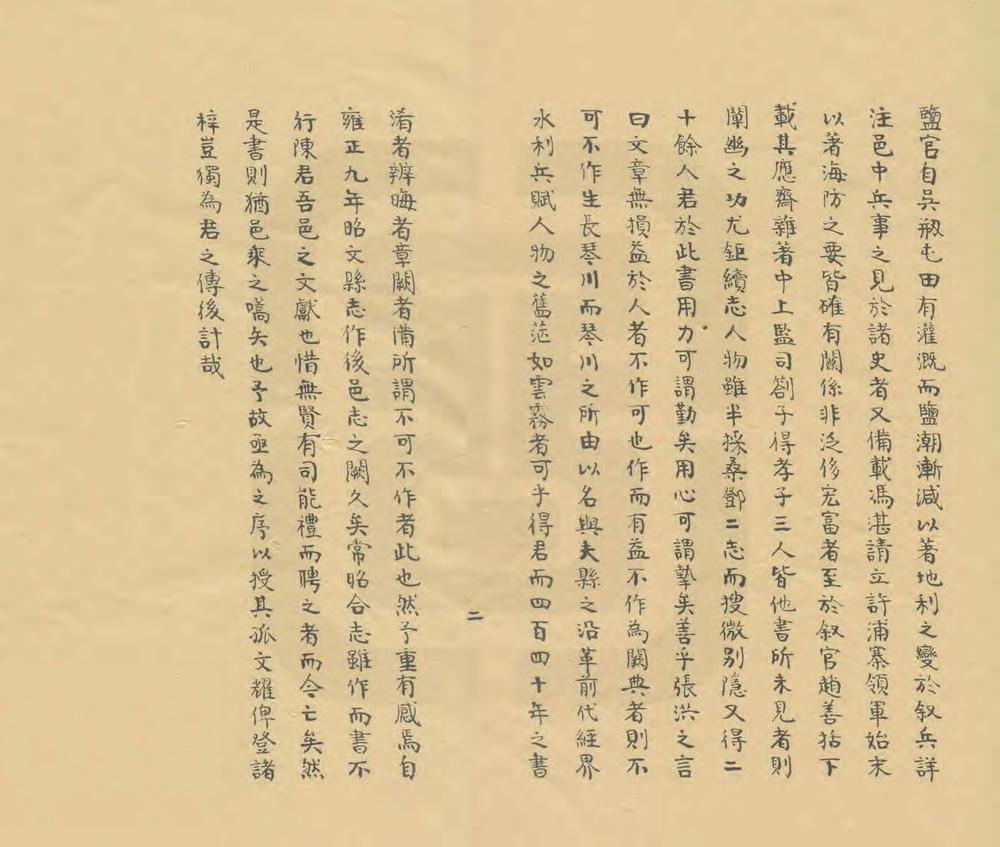 鹽官自吳氶屯田有灌溉而鹽潮漸減以著地利之變於叙兵詳
注邑中兵事之見於諸史者又備載馮湛請立許浦寨領軍始末
以著海防之要皆確有關係非泛侈宏富者至於叙官趙善括下
載其應齋雜著中上監司劄子得孝子三人皆他書所未見者則
闡幽之功尤鉅續志人物雖半採桑鄧二志而搜微別隱又得二
十餘人君於此書用力可謂勤矣用心可謂摯矣善乎張洪之言
曰文章無損益於人者不作可也作而有益不作為闕典者則不
可不作生長琴川而琴川之所由以名與夫縣之沿革前代經界
水利兵賦人物之舊茫如雲霧者可乎得君而四百四十年之書
二
淆者辨晦者章闕者備所謂不可不作者此也然予重有感焉自
雍正九年昭文縣志作後邑志之闕久矣常昭合志雖作而書不
行陳君吾邑之文獻也惜無賢有司能禮而聘之者而今亡矣然
是書則猶邑乘之嚆矢也予故亟為之序以授其孤文燿俾登諸
梓豈獨為君之傳後計哉